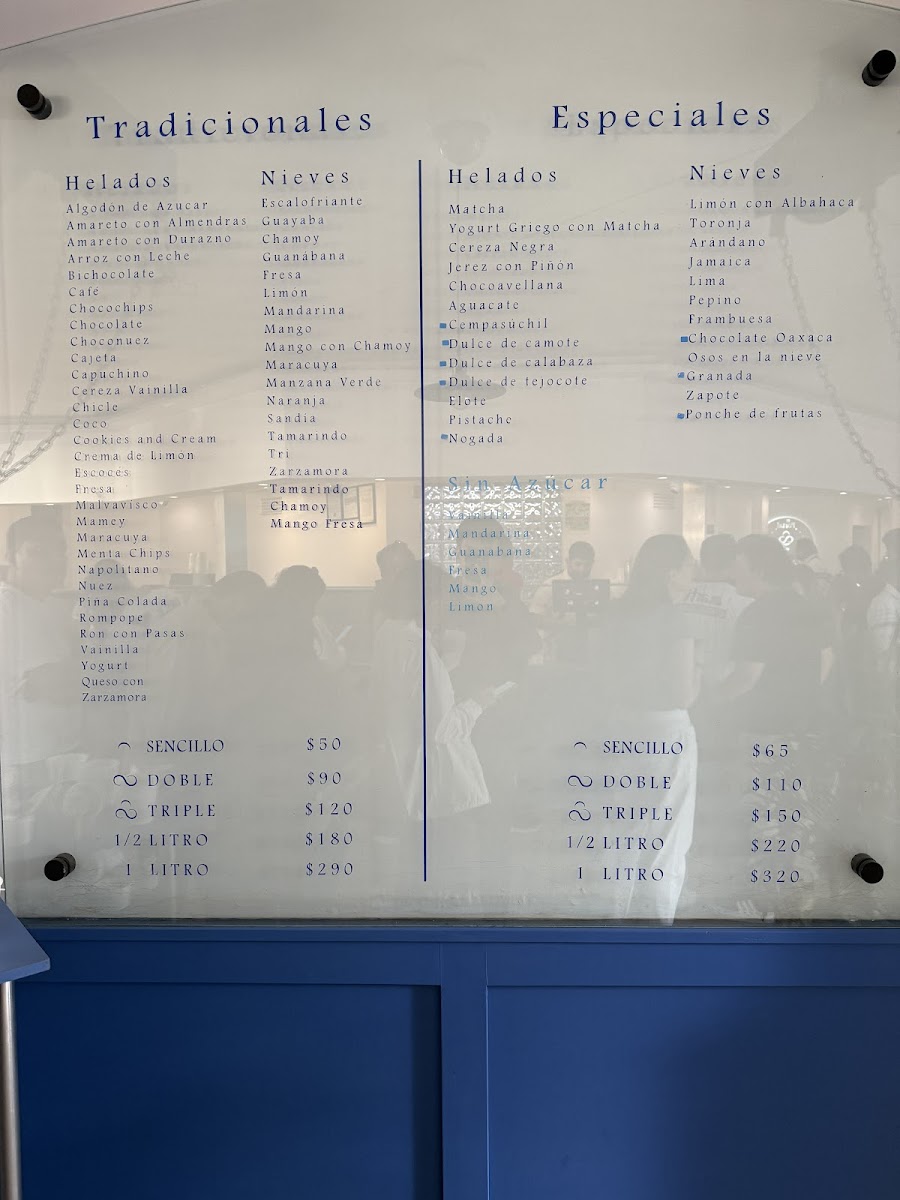 Tradicionales
Helados
Algodón de Azucar
Amareto con Almendras
Amareto con Durazno
Arroz con Leche
Bichocolate
Café
Chocochips
Chocolate
Choconuez
Cajeta
Capuchino
Cereza Vainilla
Chicle
Coco
Cookies and Cream
Crema de Limón
Escoces
Fresa
Malvavisco
Mamey
Maracuya
Menta Chips
Napolitano
Nuez
Piña Colada
Rompope
Ron con Pasas
Vainilla
Yogurt
Queso con
Zarzamora
Nieves
Escalofriante
Guayaba
Chamoy
Guanábana
Fresa
Limón
Mandarina
Mango
Mango con Chamoy
Maracuya
Manzana Verde
Naranja
Sandia
Tamarindo
Tri
Zarzamora
Tamarindo
Chamoy
Mango Fresa
SENCILLO $50
DOBLE $90
TRIPLE $120
1/2 LITRO $180
1 LITRO $290
Especiales
Helados
Matcha
Yogurt Griego con Matcha
Cereza Negra
Jerez con Piñón
Chocoavellana
Aguacate
Cempasúchil
Dulce de camote
Dulce de calabaza
Dulce de tejocote
Elote
Pistache
Nogada
Nieves
Limón con Albahaca
Toronja
Arándano
Jamaica
Lima
Pepino
Frambuesa
Chocolate Oaxaca
Osos en la nieve
Granada
Zapote
Ponche de frutas
Sin Azúcar
Vainilla
Mandarina
Guanabana
Fresa
Mango
Limon
SENCILLO $65
DOBLE $110
TRIPLE $150
1/2 LITRO $220
1 LITRO $320